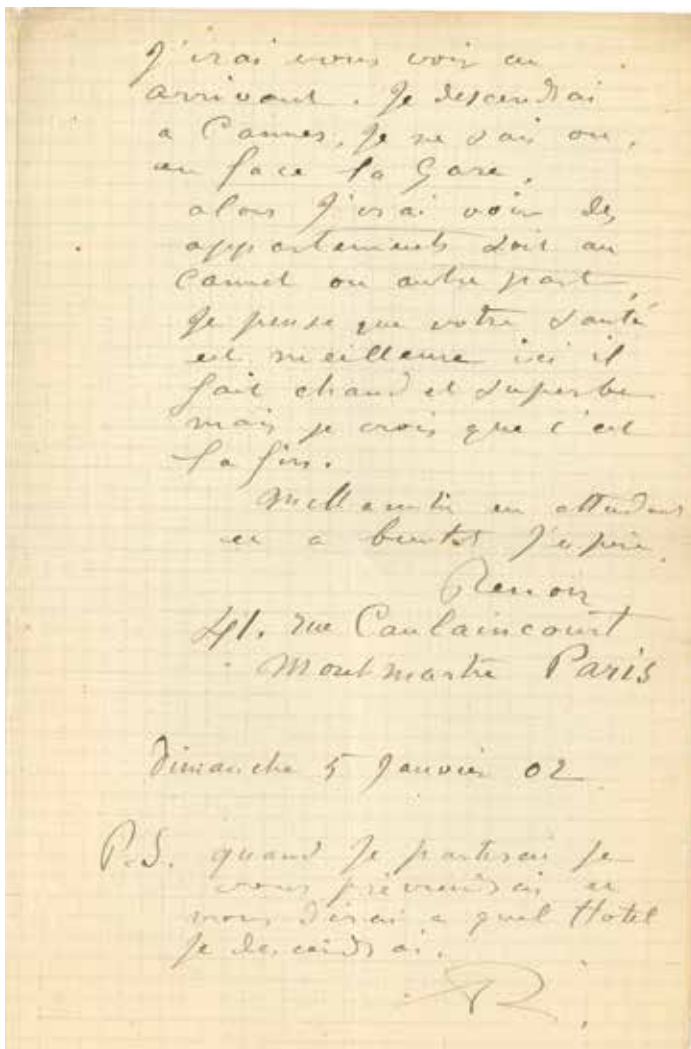 J'irai vous voir en
arrivant. Je descendrai
a Cannes, je ne sais ou,
en face la Gare,
alors J'irai voir des
appartements soit au
Cannet ou autre part,
Je pense que votre santé
est meilleure ici il
fait chaud et superbe
mais je crois que c'est
la fin.
Mille amitiés en attendant
et a bientot J'espère.
Renoir
41. rue Caulaincourt
Montmartre Paris
Dimanche 5 Janvier 02
P.S. quand Je partirai Je
vous préviendrai et
vous dirai a quel Hotel
Je descendrai.
R.